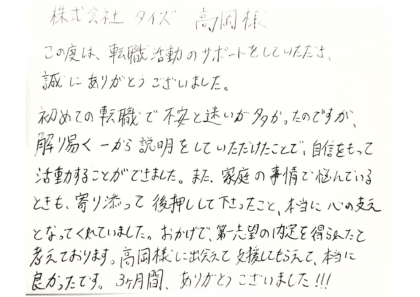 株式会社 タイズ 高岡様
この度は、転職活動のサポートをしていただき、
誠にありがとうございました。
初めての転職で不安と迷いが多かったのですが、
解り易く一から説明をしていただけたことで、自信をもって
活動することができました。また、家庭の事情で悩んでいる
ときも、寄り添って後押しして下さったこと、本当に心の支え
となってくれていました。おかげで、第一志望の内定を得られたと
考えております。高岡様に出会えて支援してもらえて、本当に
良かったです。3ヶ月間、ありがとうございました!!!